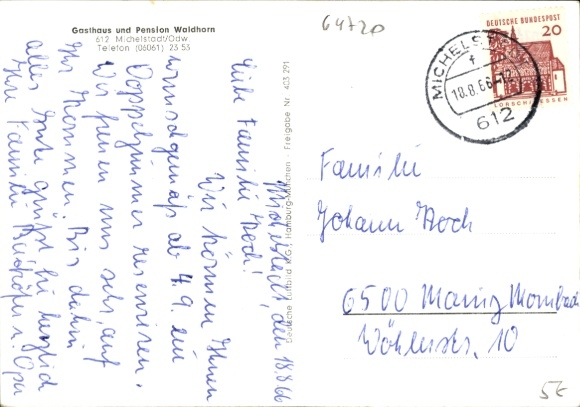 Gasthaus und Pension Waldhorn
612 Michelstadt/Odw.
Telefon (06061) 23 53
64720
DEUTSCHE BUNDESPOST
20
LORSCH/HESSEN
MICHELSTADT
18.8.66-12
612
Michelstadt, den 18.8.66
Liebe Familie Koch!
Wir können Ihnen
wunschgemäß ab 4.9. ein
Doppelzimmer reservieren.
Wir freuen uns sehr, auf
Ihr Kommen. Bis dahin
alles Gute grüßt Sie herzlich
Ihre Familie u. Opa
Deutsche Luftbild KG, Hamburg-München - Freigabe Nr. 403 291
Familie
Johann Koch
6500 Mainz Mombach
Wöhlerstr. 10
5€